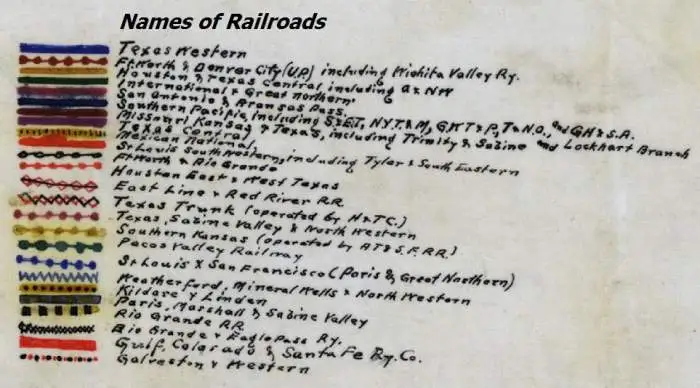 Names of Railroads
Texas Western
Ft. Worth & Denver City (U.P.) including Wichita Valley Ry.
Houston & Texas Central including A & NW
International & Great Northern
San Antonio & Aransas Pass.
Southern Pacific, including S.&E.T., N.Y.T.&M, G.W.T.&P, T.&N.O., and G.H.&S.A.
Missouri Kansas & Texas, including Trinity & Sabine and Lockhart Branch
Texas Central
Mexican National
St Louis South Western, including Tyler & South Eastern
Ft Worth & Rio Grande
Houston East & West Texas
East Line & Red River RR
Texas Trunk (operated by H&TC.)
Texas, Sabine Valley & North Western
Southern Kansas (operated by AT&S.F.RR.)
Pacos Valley Railway
St Louis & San Francisco (Paris & Great Northern)
Weatherford, Mineral Wells & North Western
Kildare & Linden
Paris, Marshall & Sabine Valley
Rio Grande RR.
Rio Grande & Eagle Pass Ry.
Gulf, Colorado & Santa Fe Ry. Co.
Galveston & Western